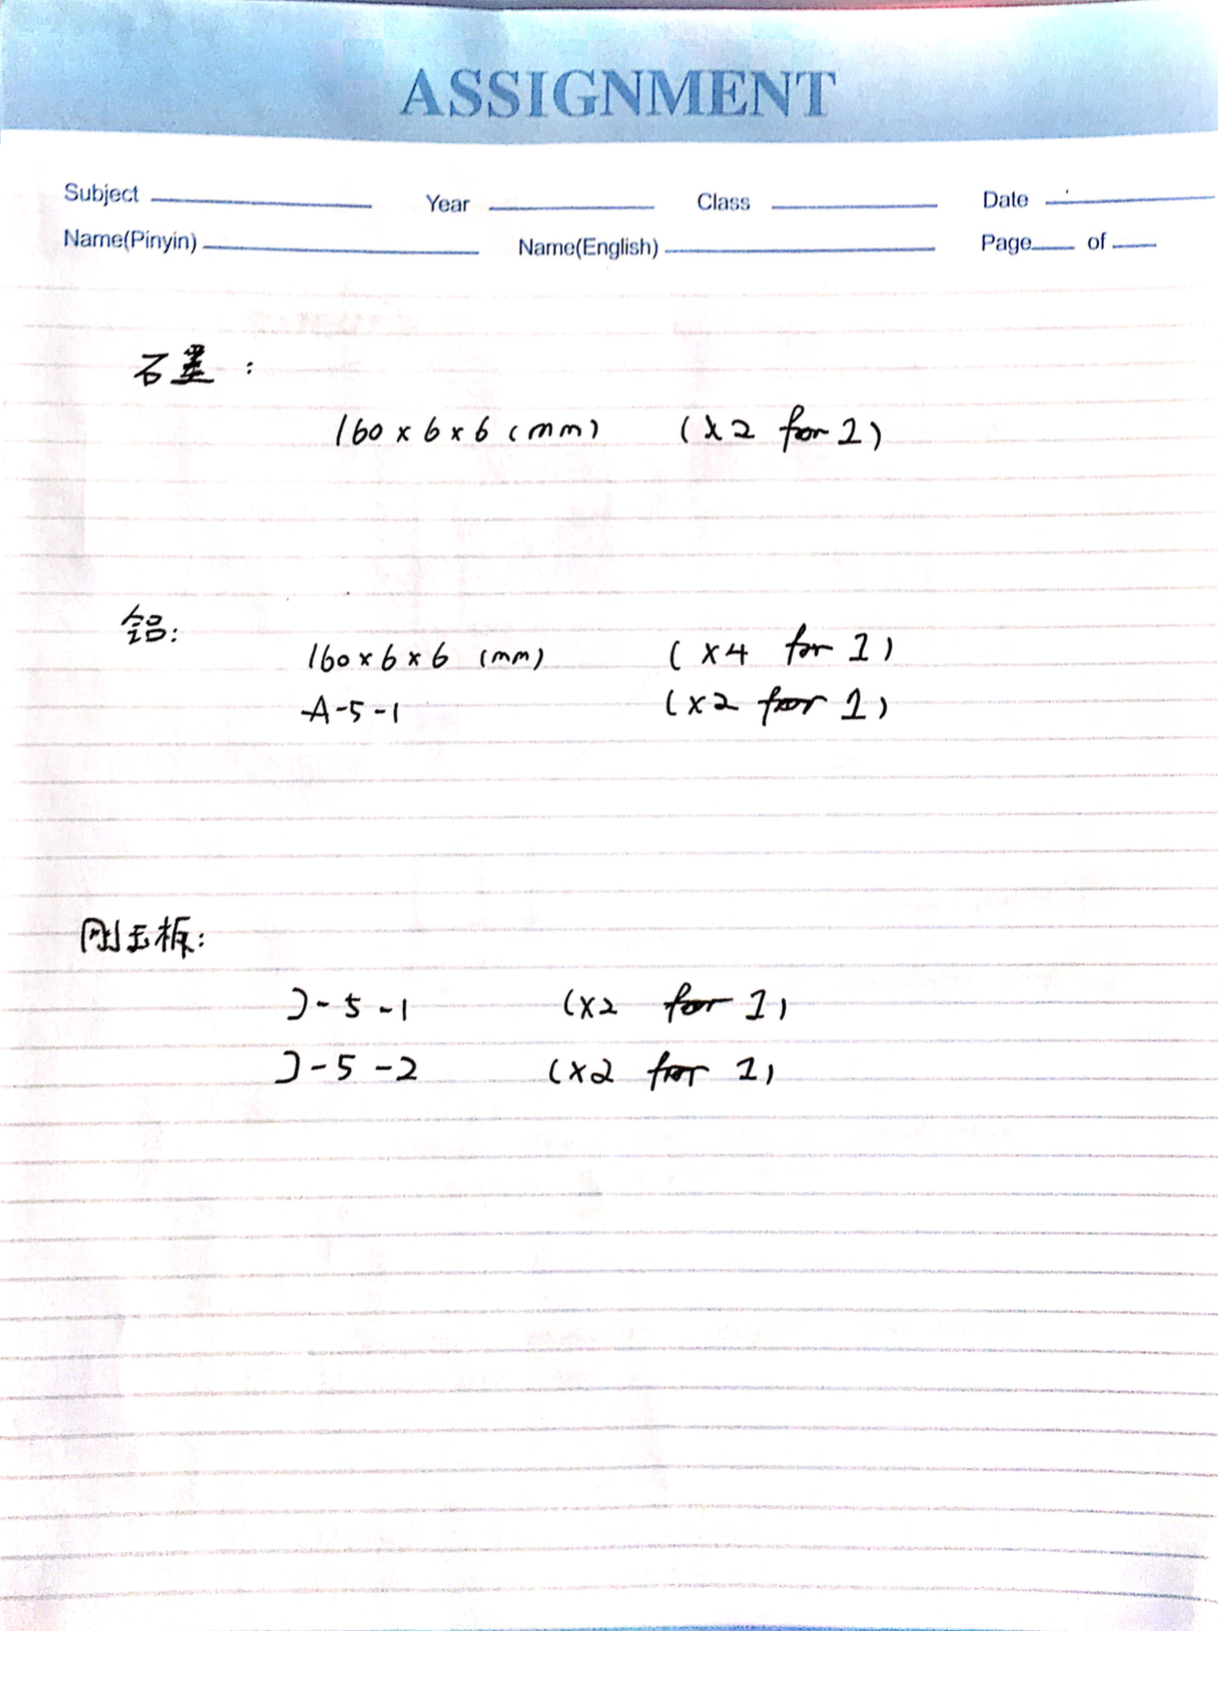 ASSIGNMENT
Subject Year Class Date
Name(Pinyin) Name(English) Page of
石墨:
160 × 6 × 6 (mm) (×2 for 1)
铝:
160 × 6 × 6 (mm) (×4 for 1)
A-5-1 (×2 for 1)
刚玉板:
J-5-1 (×2 for 1)
J-5-2 (×2 for 1)